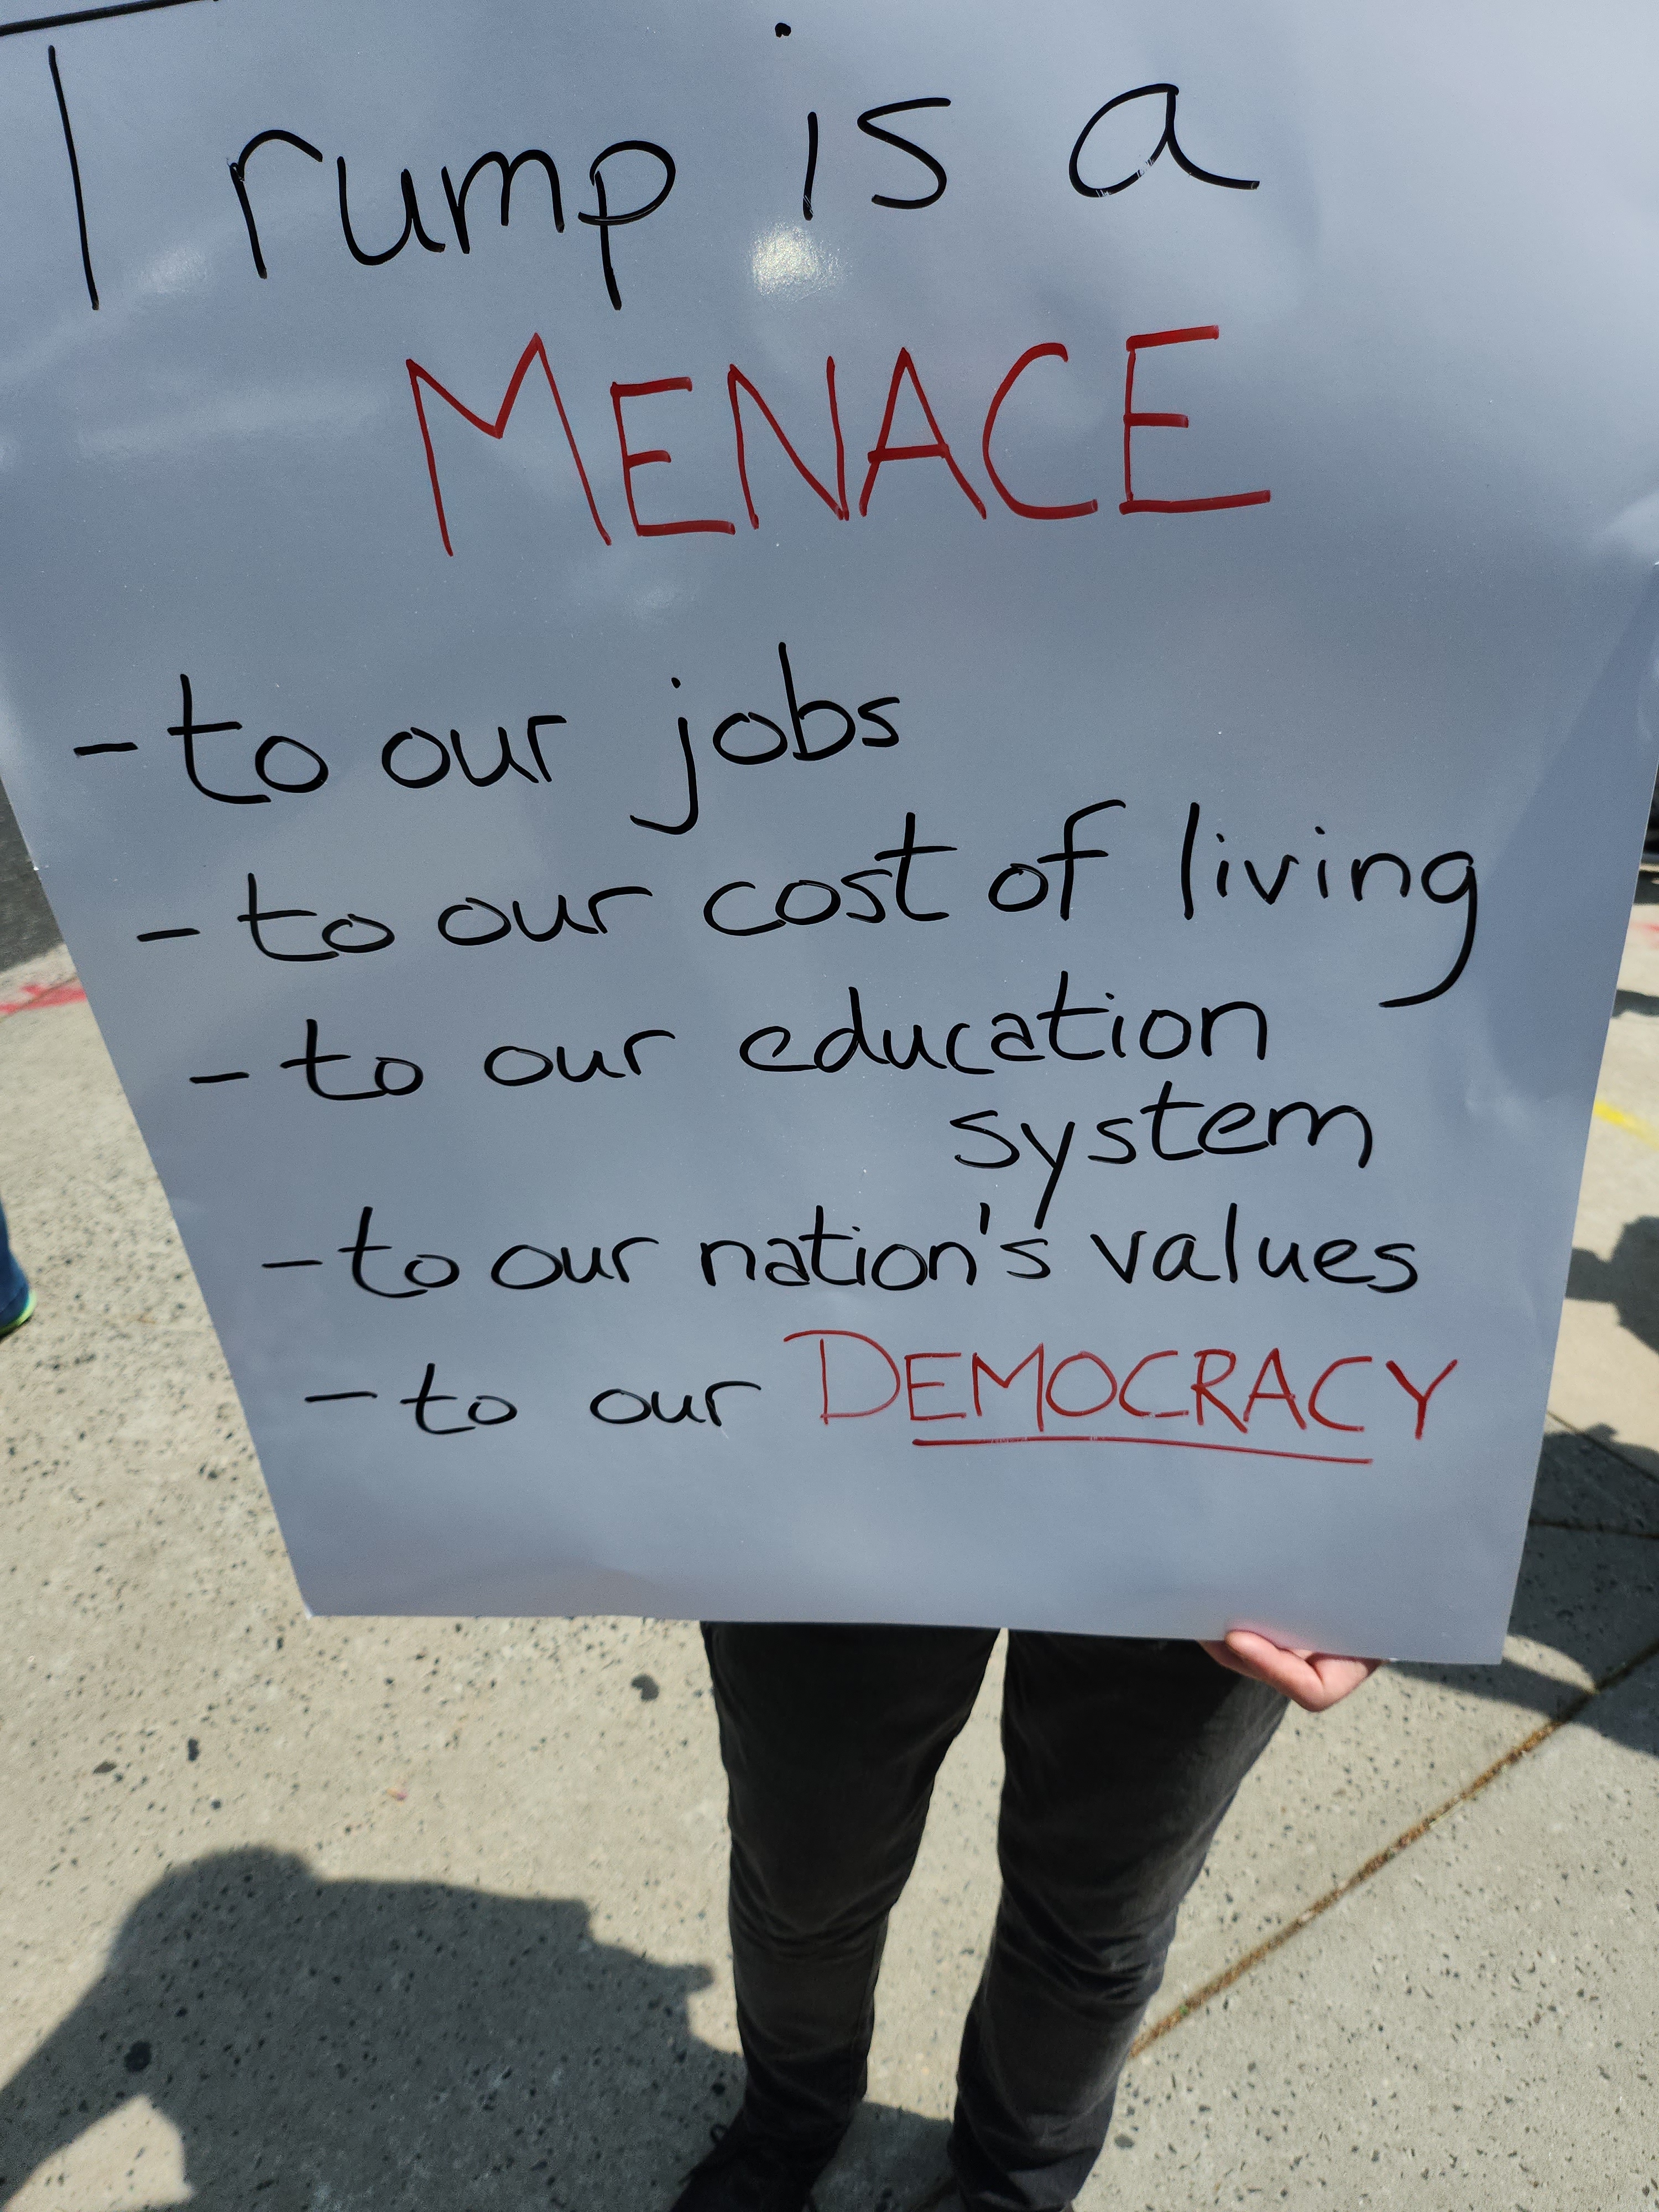 Trump is a
MENACE
- to our jobs
- to our cost of living
- to our education
system
- to our nation's values
- to our DEMOCRACY